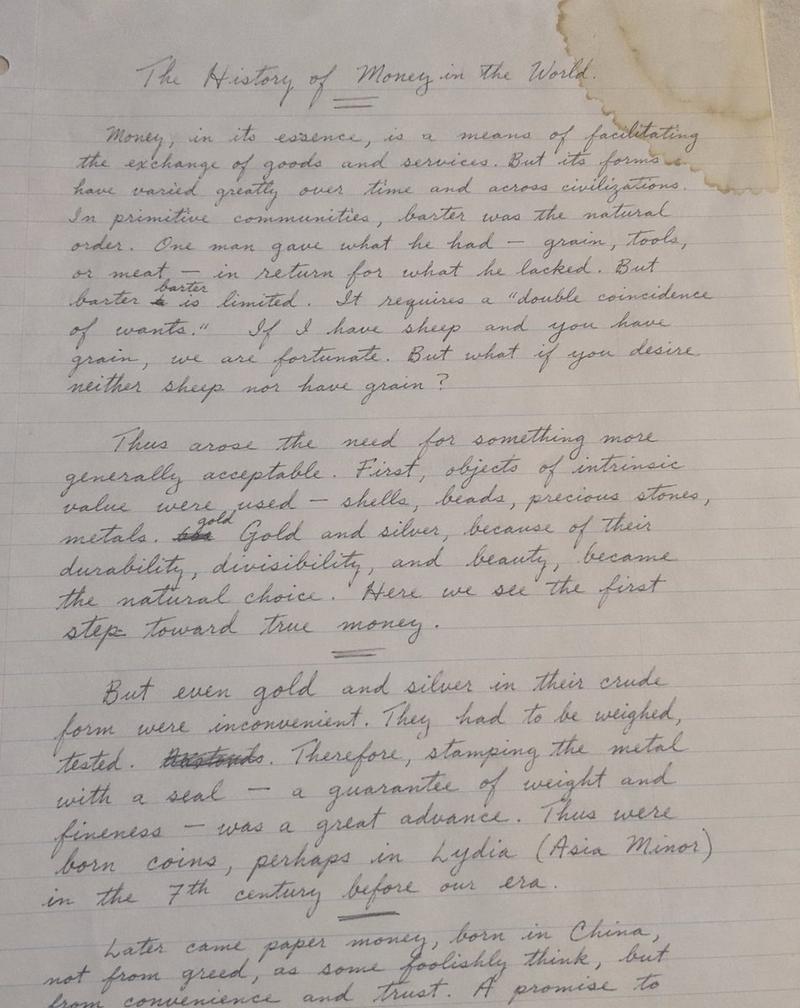 The History of Money in the World.
Money, in its essence, is a means of facilitating
the exchange of goods and services. But its forms
have varied greatly over time and across civilizations.
In primitive communities, barter was the natural
order. One man gave what he had — grain, tools,
or meat — in return for what he lacked. But
barter
barter is limited. It requires a "double coincidence
of wants." If I have sheep and you have
grain, we are fortunate. But what if you desire
neither sheep nor have grain?
Thus arose the need for something more
generally acceptable. First, objects of intrinsic
value were used — shells, beads, precious stones,
gold
metals. Gold and silver, because of their
durability, divisibility, and beauty, became
the natural choice. Here we see the first
step toward true money.
But even gold and silver in their crude
form were inconvenient. They had to be weighed,
tested. Therefore, stamping the metal
with a seal — a guarantee of weight and
fineness — was a great advance. Thus were
born coins, perhaps in Lydia (Asia Minor)
in the 7th century before our era.
Later came paper money, born in China,
not from greed, as some foolishly think, but
from convenience and trust. A promise to